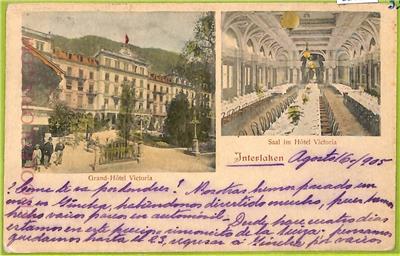 Grand-Hôtel Victoria
Saal im Hôtel Victoria
Interlaken
Agosto 16/905
¿Como te va por Londres? Nosotras hemos pasado un
mes en habiéndonos divertido mucho, pues hemos
hecho varios paseos en automóvil - Desde hace cuatro dias
estamos en este precioso de la Suiza; pensamos
quedarnos hasta el 23, regresar á por varios